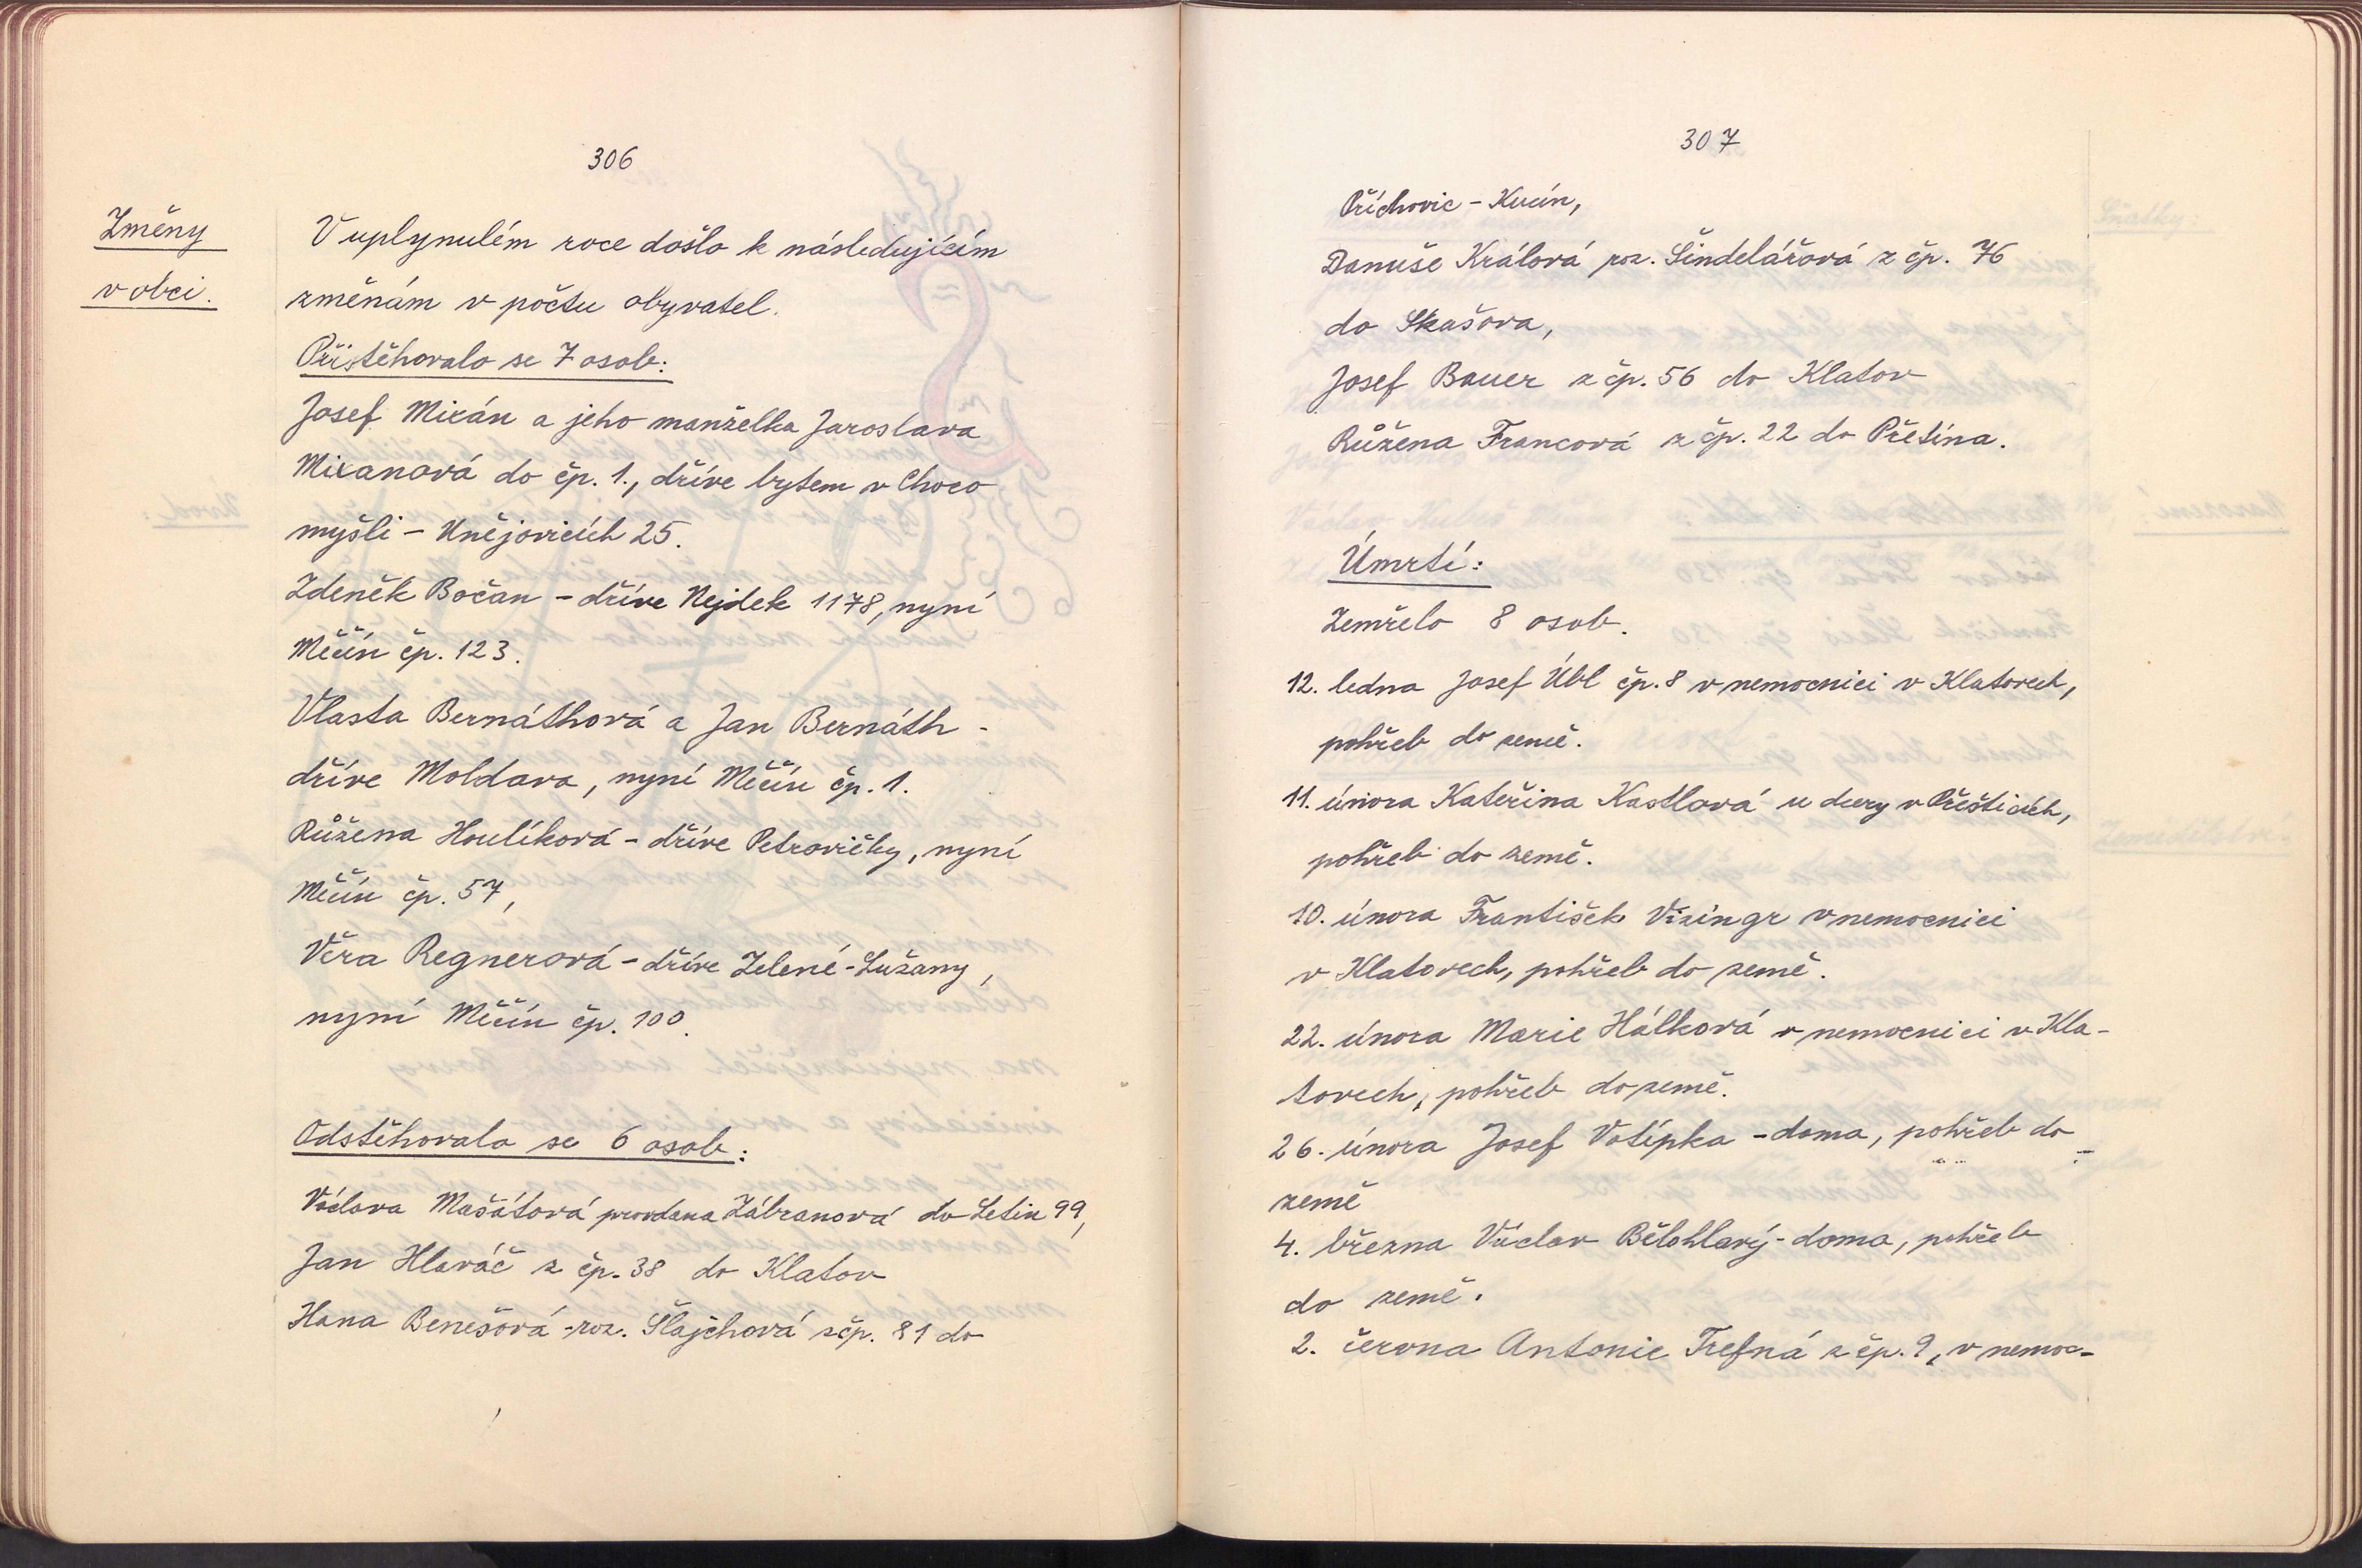 306
Změny
v obci.
V uplynulém roce došlo k následujícím
změnám v počtu obyvatel.
Přistěhovalo se 7 osob:
Josef Mixán a jeho manželka Jaroslava
Mixanová do čp. 1., dříve bytem v Choco
myšli - Unějovicích 25.
Zdeněk Bočan - dříve Nejdek 1178, nyní
Měčín čp. 123.
Vlasta Bernáthová a Jan Bernáth -
dříve Moldava, nyní Měčín čp. 1.
Růžena Houlíková - dříve Petrovičky, nyní
Měčín čp. 57,
Věra Regnerová - dříve Zelené-Lužany,
nyní Měčín čp. 100.
Odstěhovalo se 6 osob:
Václava Mašátová provdana Zábranová do Letin 99,
Jan Hlaváč z čp. 38 do Klatov
Hana Benešová - roz. Šlajchová z čp. 81 do
307
Příchovic - Kucín,
Danuše Králová roz. Šindelářová z čp. 76
do Skašova,
Josef Bauer z čp. 56 do Klatov
Růžena Francová z čp. 22 do Přetína.
Úmrtí:
Zemřelo 8 osob.
12. ledna Josef Übl čp. 8 v nemocnici v Klatovech,
pohřeb do země.
11. února Kateřina Kastlová u dcery v Přešticích,
pohřeb do země.
10. února František Vizingr v nemocnici
v Klatovech, pohřeb do země.
22. února Marie Hálková v nemocnici v Kla-
tovech, pohřeb do země.
26. února Josef Votípka - doma, pohřeb do
země
4. března Václav Bělohlavý - doma, pohřeb
do země.
2. června Antonie Trefná z čp. 9, v nemoc-